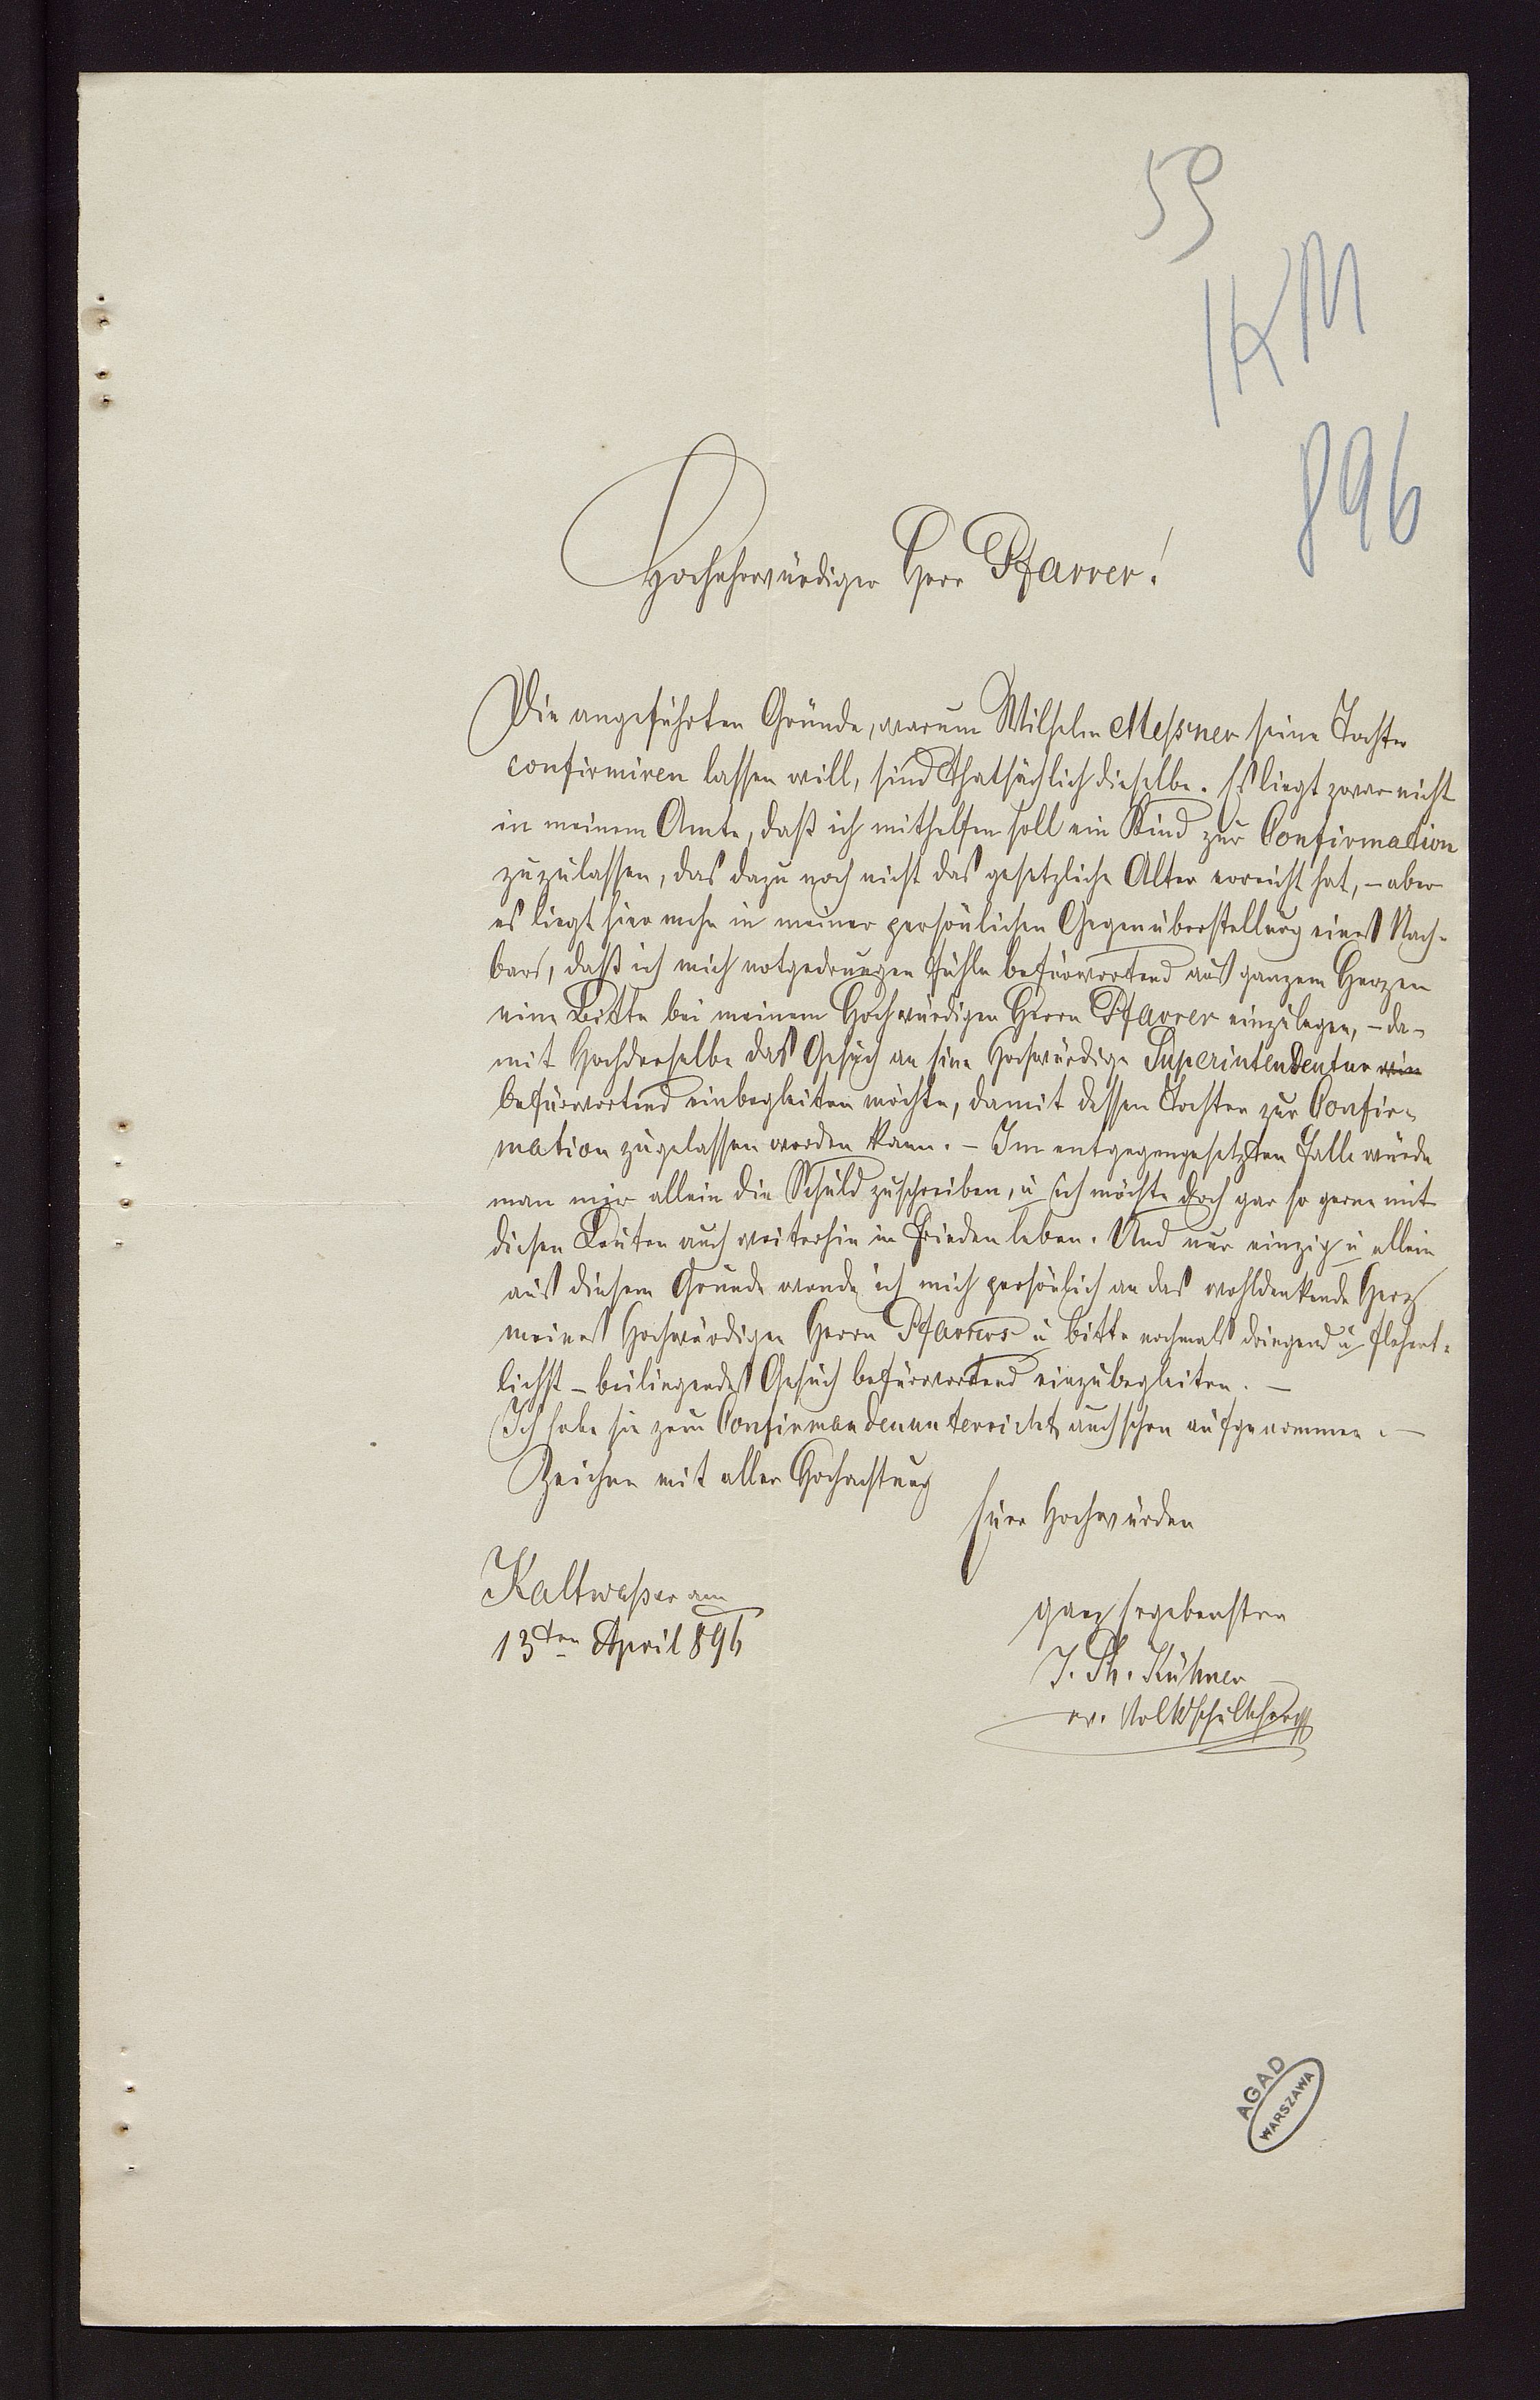 59
1KM
896
Hochehrwürdiger Herr Pfarrer!
Die angeführten Gründe, warum Wilhelm Meßner seine Tochter
confirmiren lassen will, sind thatsächlich dieselbe. Es liegt zwar nicht
in meinem Amte, daß ich mithelfen soll ein Kind zur Confirmation
zuzulassen, das dazu noch nicht das gesetzliche Alter erreicht hat, – aber
es liegt hier mehr in meiner persönlichen Gegenüberstellung eines Nach-
bars, daß ich mich notgedrungen fühle befürwortend aus ganzem Herzen
eine Bitte bei meinem Hochwürdigen Herrn Pfarrer einzulegen, – da-
mit Hochderselbe das Gesuch an eine Hochwürdige Superintendentur ein
befürwortend einbegleiten möchte, damit dessen Tochter zur Confir-
mation zugelassen werden kann. – Im entgegengesetzten Falle würde
man mir allein die Schuld zuschreiben, u ich möchte doch gar so gerne mit
diesen Leuten auch weiterhin in Frieden leben. Und nur einzig u allein
aus diesem Grunde wende ich mich persönlich an das wohldenkende Herz
meines Hochwürdigen Herrn Pfarrers u bitte nochmals dringend u flehent-
lichst – beiliegendes Gesuch befürwortend einzubegleiten. –
Ich habe sie zum Confirmandenunterricht auch schon aufgenommen. –
Zeichne mit aller Hochachtung
Euer Hochwürden
Kaltwaßer am
13ten April 896
ganz ergebenster
J. Ph. Kühner
ev. Volksschullehrer
AGAD
WARSZAWA